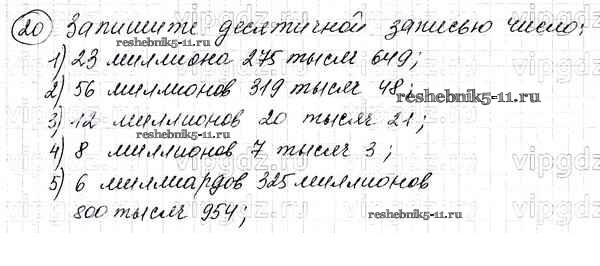 20 Запишите десятичной записью число:
1) 23 миллиона 275 тысяч 649;
reshebnik5-11.ru
2) 56 миллионов 319 тысяч 48;
reshebnik5-11.ru
3) 12 миллионов 20 тысяч 21;
reshebnik5-11.ru
4) 8 миллионов 7 тысяч 3;
5) 6 миллиардов 325 миллионов
800 тысяч 954;
reshebnik5-11.ru